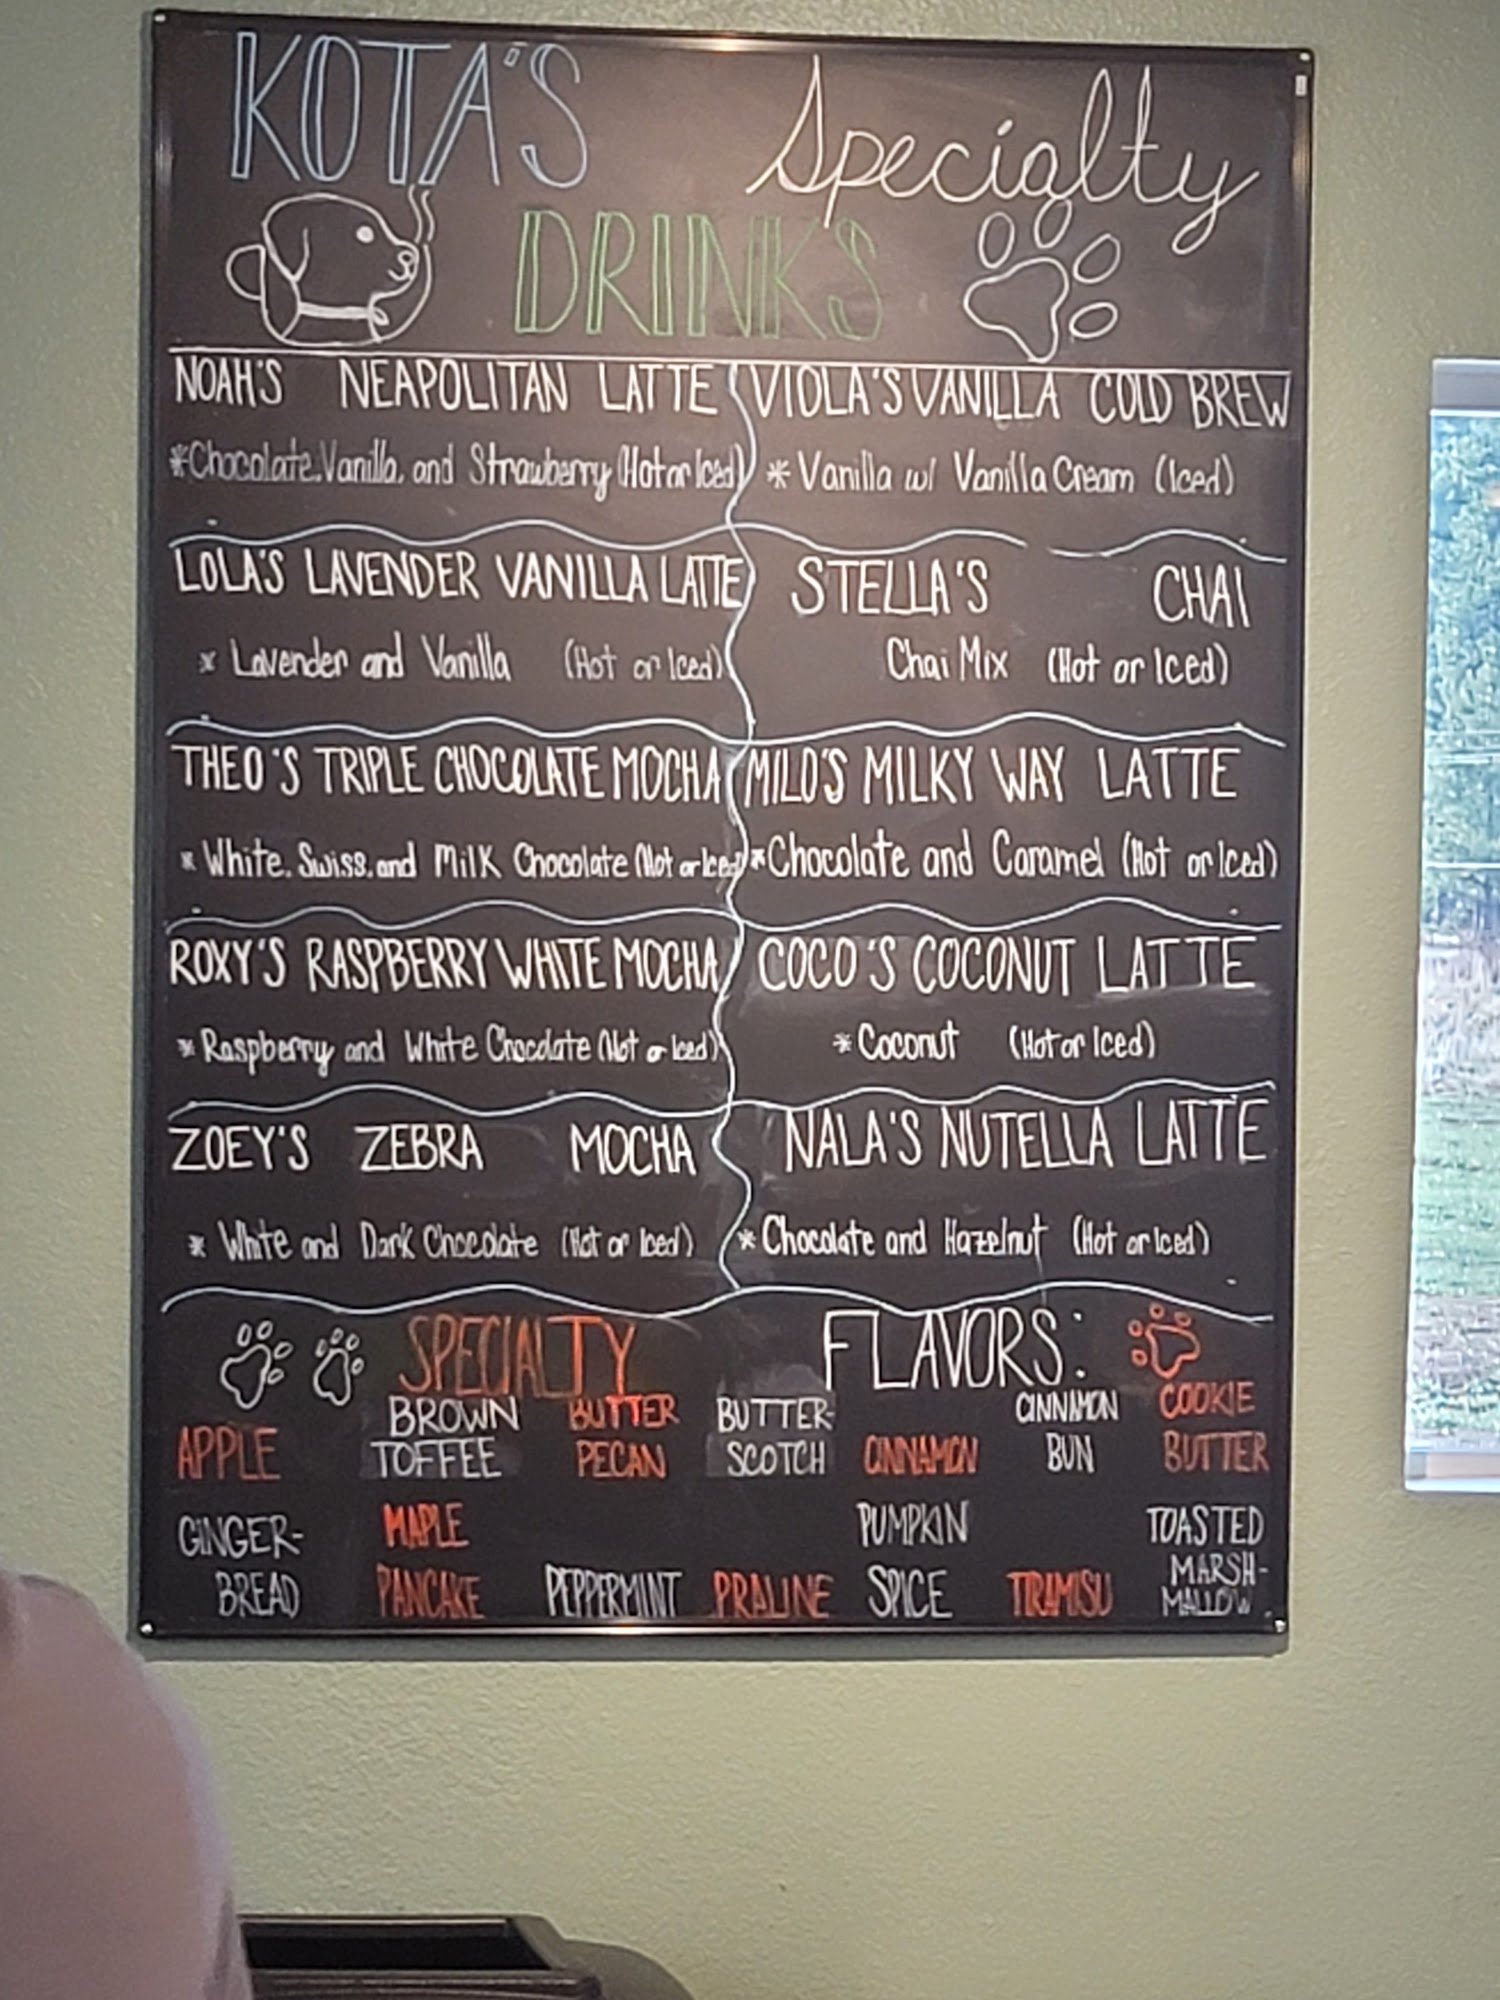 KOTA'S Specialty
DRINKS
NOAH'S NEAPOLITAN LATTE
*Chocolate, Vanilla, and Strawberry (Hot or Iced)
VIOLA'S VANILLA COLD BREW
* Vanilla w/ Vanilla Cream (Iced)
LOLA'S LAVENDER VANILLA LATTE
* Lavender and Vanilla (Hot or Iced)
STELLA'S CHAI
Chai Mix (Hot or Iced)
THEO'S TRIPLE CHOCOLATE MOCHA
* White, Swiss, and Milk Chocolate (Hot or Iced)
MILO'S MILKY WAY LATTE
*Chocolate and Caramel (Hot or Iced)
ROXY'S RASPBERRY WHITE MOCHA
* Raspberry and White Chocolate (Hot or Iced)
COCO'S COCONUT LATTE
* Coconut (Hot or Iced)
ZOEY'S ZEBRA MOCHA
* White and Dark Chocolate (Hot or Iced)
NALA'S NUTELLA LATTE
* Chocolate and Hazelnut (Hot or Iced)
SPECIALTY FLAVORS:
APPLE
BROWN
TOFFEE
BUTTER
PECAN
BUTTER-
SCOTCH
CINNAMON
CINNAMON
BUN
COOKIE
BUTTER
GINGER-
BREAD
MAPLE
PANCAKE
PEPPERMINT
PRALINE
PUMPKIN
SPICE
TIRAMISU
TOASTED
MARSH-
MALLOW